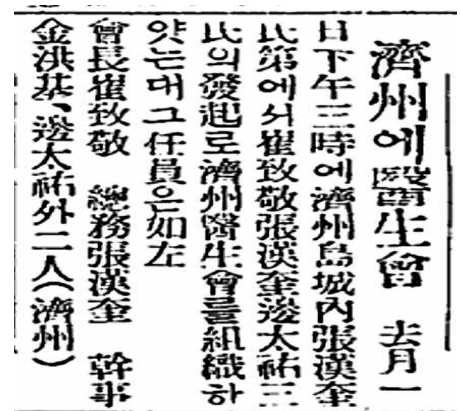 濟州에醫生會 去月一
日下午三時에濟州島城內張漢奎
氏第에서崔致敬張漢奎邊太祐三
氏의發起로濟州醫生會를組織하
얏는대그任員은如左
會長崔致敬 總務張漢奎 幹事
金洪基、邊太祐外二人(濟州)